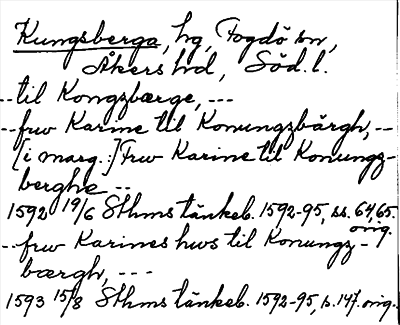 Kungsberga, hg, Fogdö sn,
Åkers hd, Söd. l.
--til Kongzbærge, ---
--frw Karine til Konungzbärgh, --
[i marg.:] Frw Karine til Konungz-
berghe --
1592 19/6 Sthms tänkeb. 1592-95, ss. 64, 65.
orig.
--frw Karines hws til Konungz-
bærgh, ---
1593 15/8 Sthms tänkeb. 1592-95, s. 147. orig.